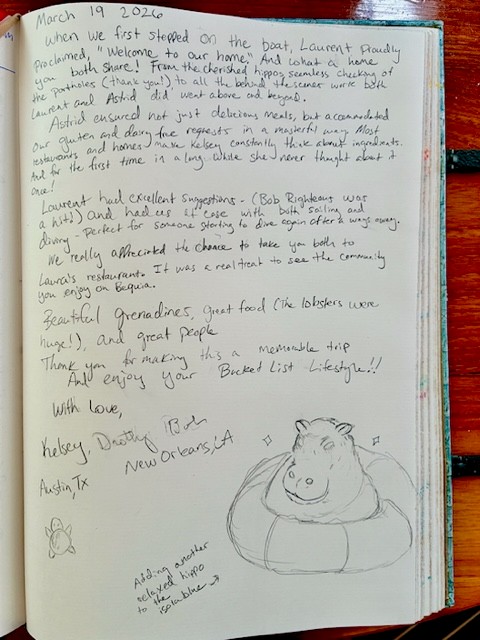 March 19 2026
When we first stepped on the boat, Laurent Proudly
Proclaimed, "Welcome to our home." And what a home
you both share! From the cherished hippos, seamless checking of
the portholes (thank you!) to all the behind the scenes work both
Laurent and Astrid did went above and beyond.
Astrid ensured not just delicious meals, but accomodated
our gluten and dairy free requests in a masterful way. Most
restaurants and homes make Kelsey constantly think about ingredients.
And for the first time in a long while she never thought about it
once!
Laurent had excellent suggestions - (Bob Righteous was
a hit!) and had us at ease with both sailing and
diving - Perfect for someone starting to dive again after a ways away.
We really appreciated the chance to take you both to
Laura's restaurant. It was a real treat to see the community
you enjoy on Bequia.
Beautiful grenadines, great food (The lobsters were
huge!), and great people
Thank you for making this a memorable trip
And enjoy your Bucket List Lifestyle!!
With Love,
Kelsey, Dorothy, Bob
New Orleans, LA
Austin, Tx
Adding another
relaxed hippo
to the